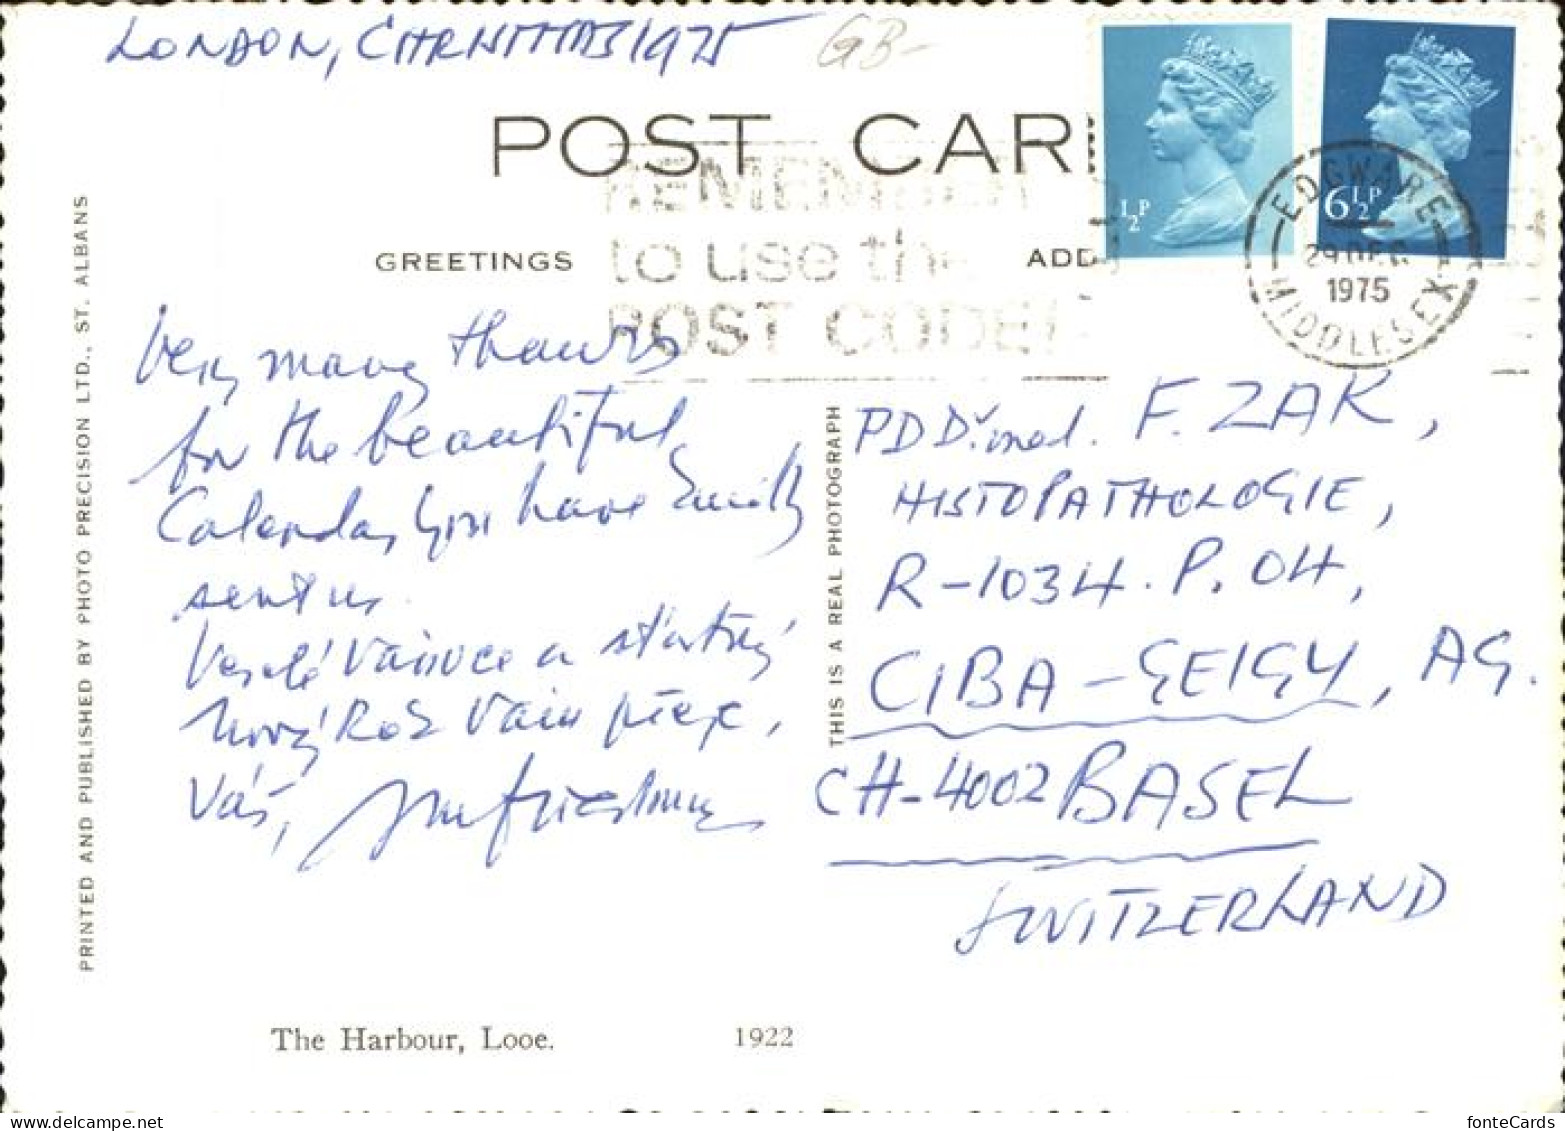 LONDON, 1975
GB-
POST CAR
REMEMBER
to use the
POST CODE!
½P
6½P
EDGWARE
29 DEC
1975
MIDDLESEX
GREETINGS
ADD
Very many thanks
for the beautiful
Calendar you have kindly
sent us.
Veselé Vánoce a šťastný
Nový Rok Vám přeje,
Váš,
PRINTED AND PUBLISHED BY PHOTO PRECISION LTD., ST. ALBANS
THIS IS A REAL PHOTOGRAPH
PD Dr. med. F. ZAK,
HISTOPATHOLOGIE,
R-1034. P. 04,
CIBA-GEIGY, AG.
CH-4002 BASEL
SWITZERLAND
The Harbour, Looe.
1922
fonteCards